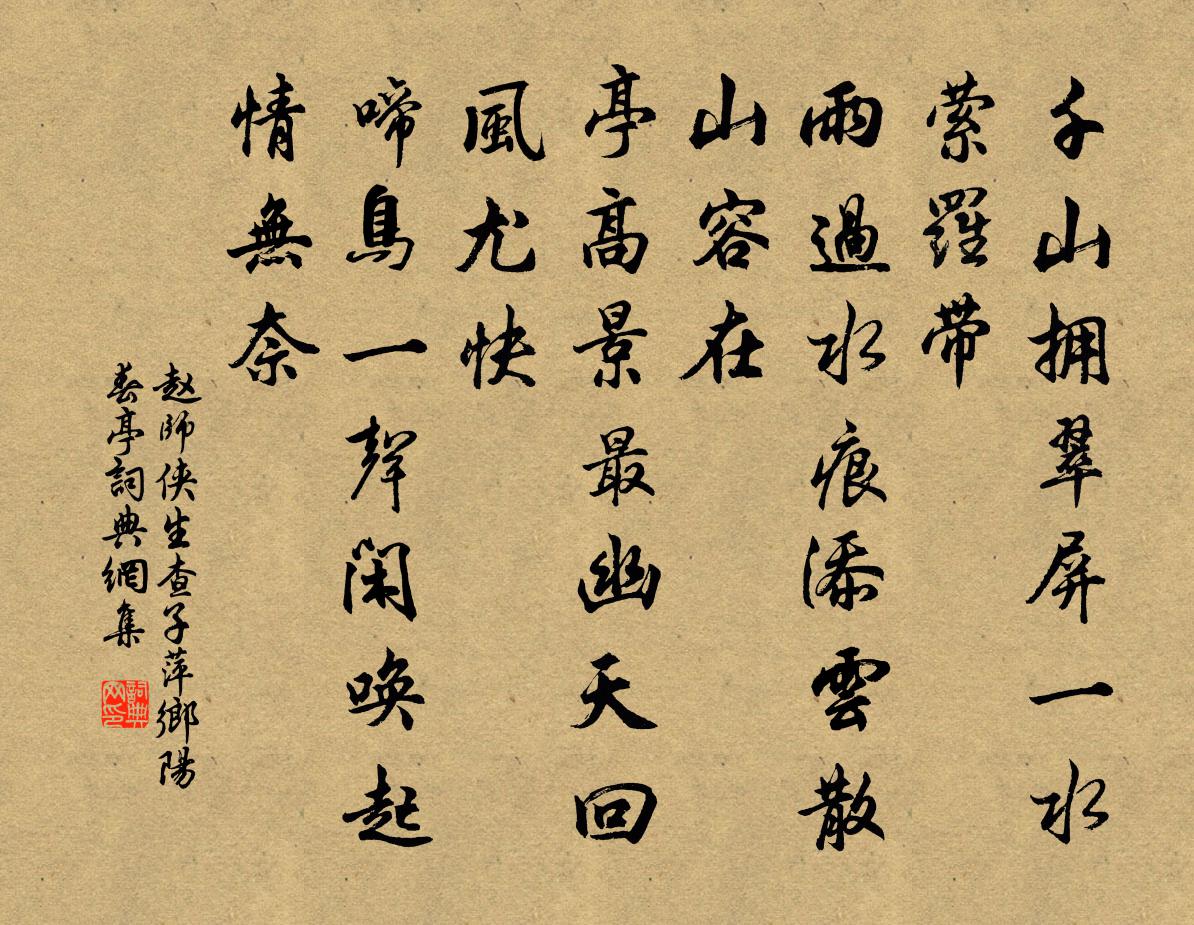 千山拥翠屏一水
萦羅帶
雨過水痕添雲散
山容在
亭高景最幽天回
風尤快
啼鳥一聲閑唤起
情無奈
赵師侠生查子萍鄉陽
春亭詞典網集
詞典网印